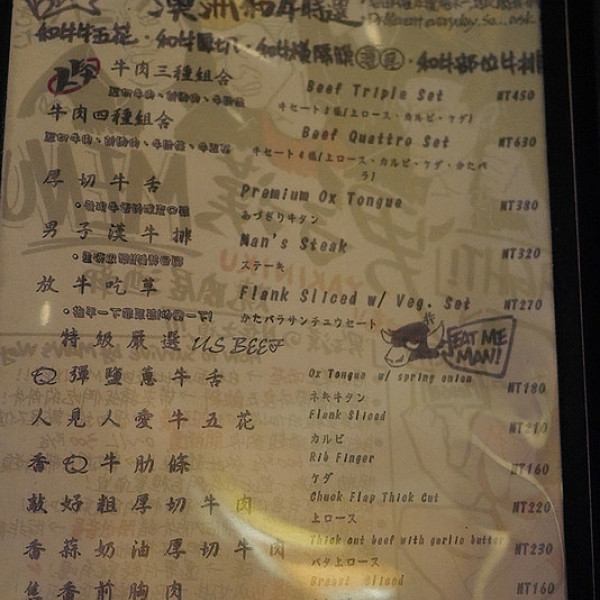 澳洲和牛特選
Different everyday. So.. ask
和牛牛五花・和牛厚切・和牛橫隔膜・和牛部位牛排
牛肉三種組合 Beef Triple Set NT450
牛セット3種(上ロース・カルビ・ゲダ)
牛肉四種組合 Beef Quattro Set NT630
牛セット4種(上ロース・カルビ・ゲダ・かたバラ)
厚切牛舌 Premium Ox Tongue NT380
あつぎり牛タン
男子漢牛排 Man's Steak NT320
ステーキ
放牛吃草 Flank Sliced w/ Veg. Set NT270
かたバラサンチュウセート
特級嚴選 US BEEF
EAT ME MAN!
Q彈鹽蔥牛舌 Ox Tongue w/ spring onion NT180
ネギ牛タン
人見人愛牛五花 Flank Sliced NT210
カルビ
香Q牛肋條 Rib Finger NT160
ゲダ
敲好粗厚切牛肉 Chuck Flap Thick Cut NT220
上ロース
香蒜奶油厚切牛肉 Thick cut beef with garlic butter NT230
バタ上ロース
焦香前胸肉 Breast Sliced NT160